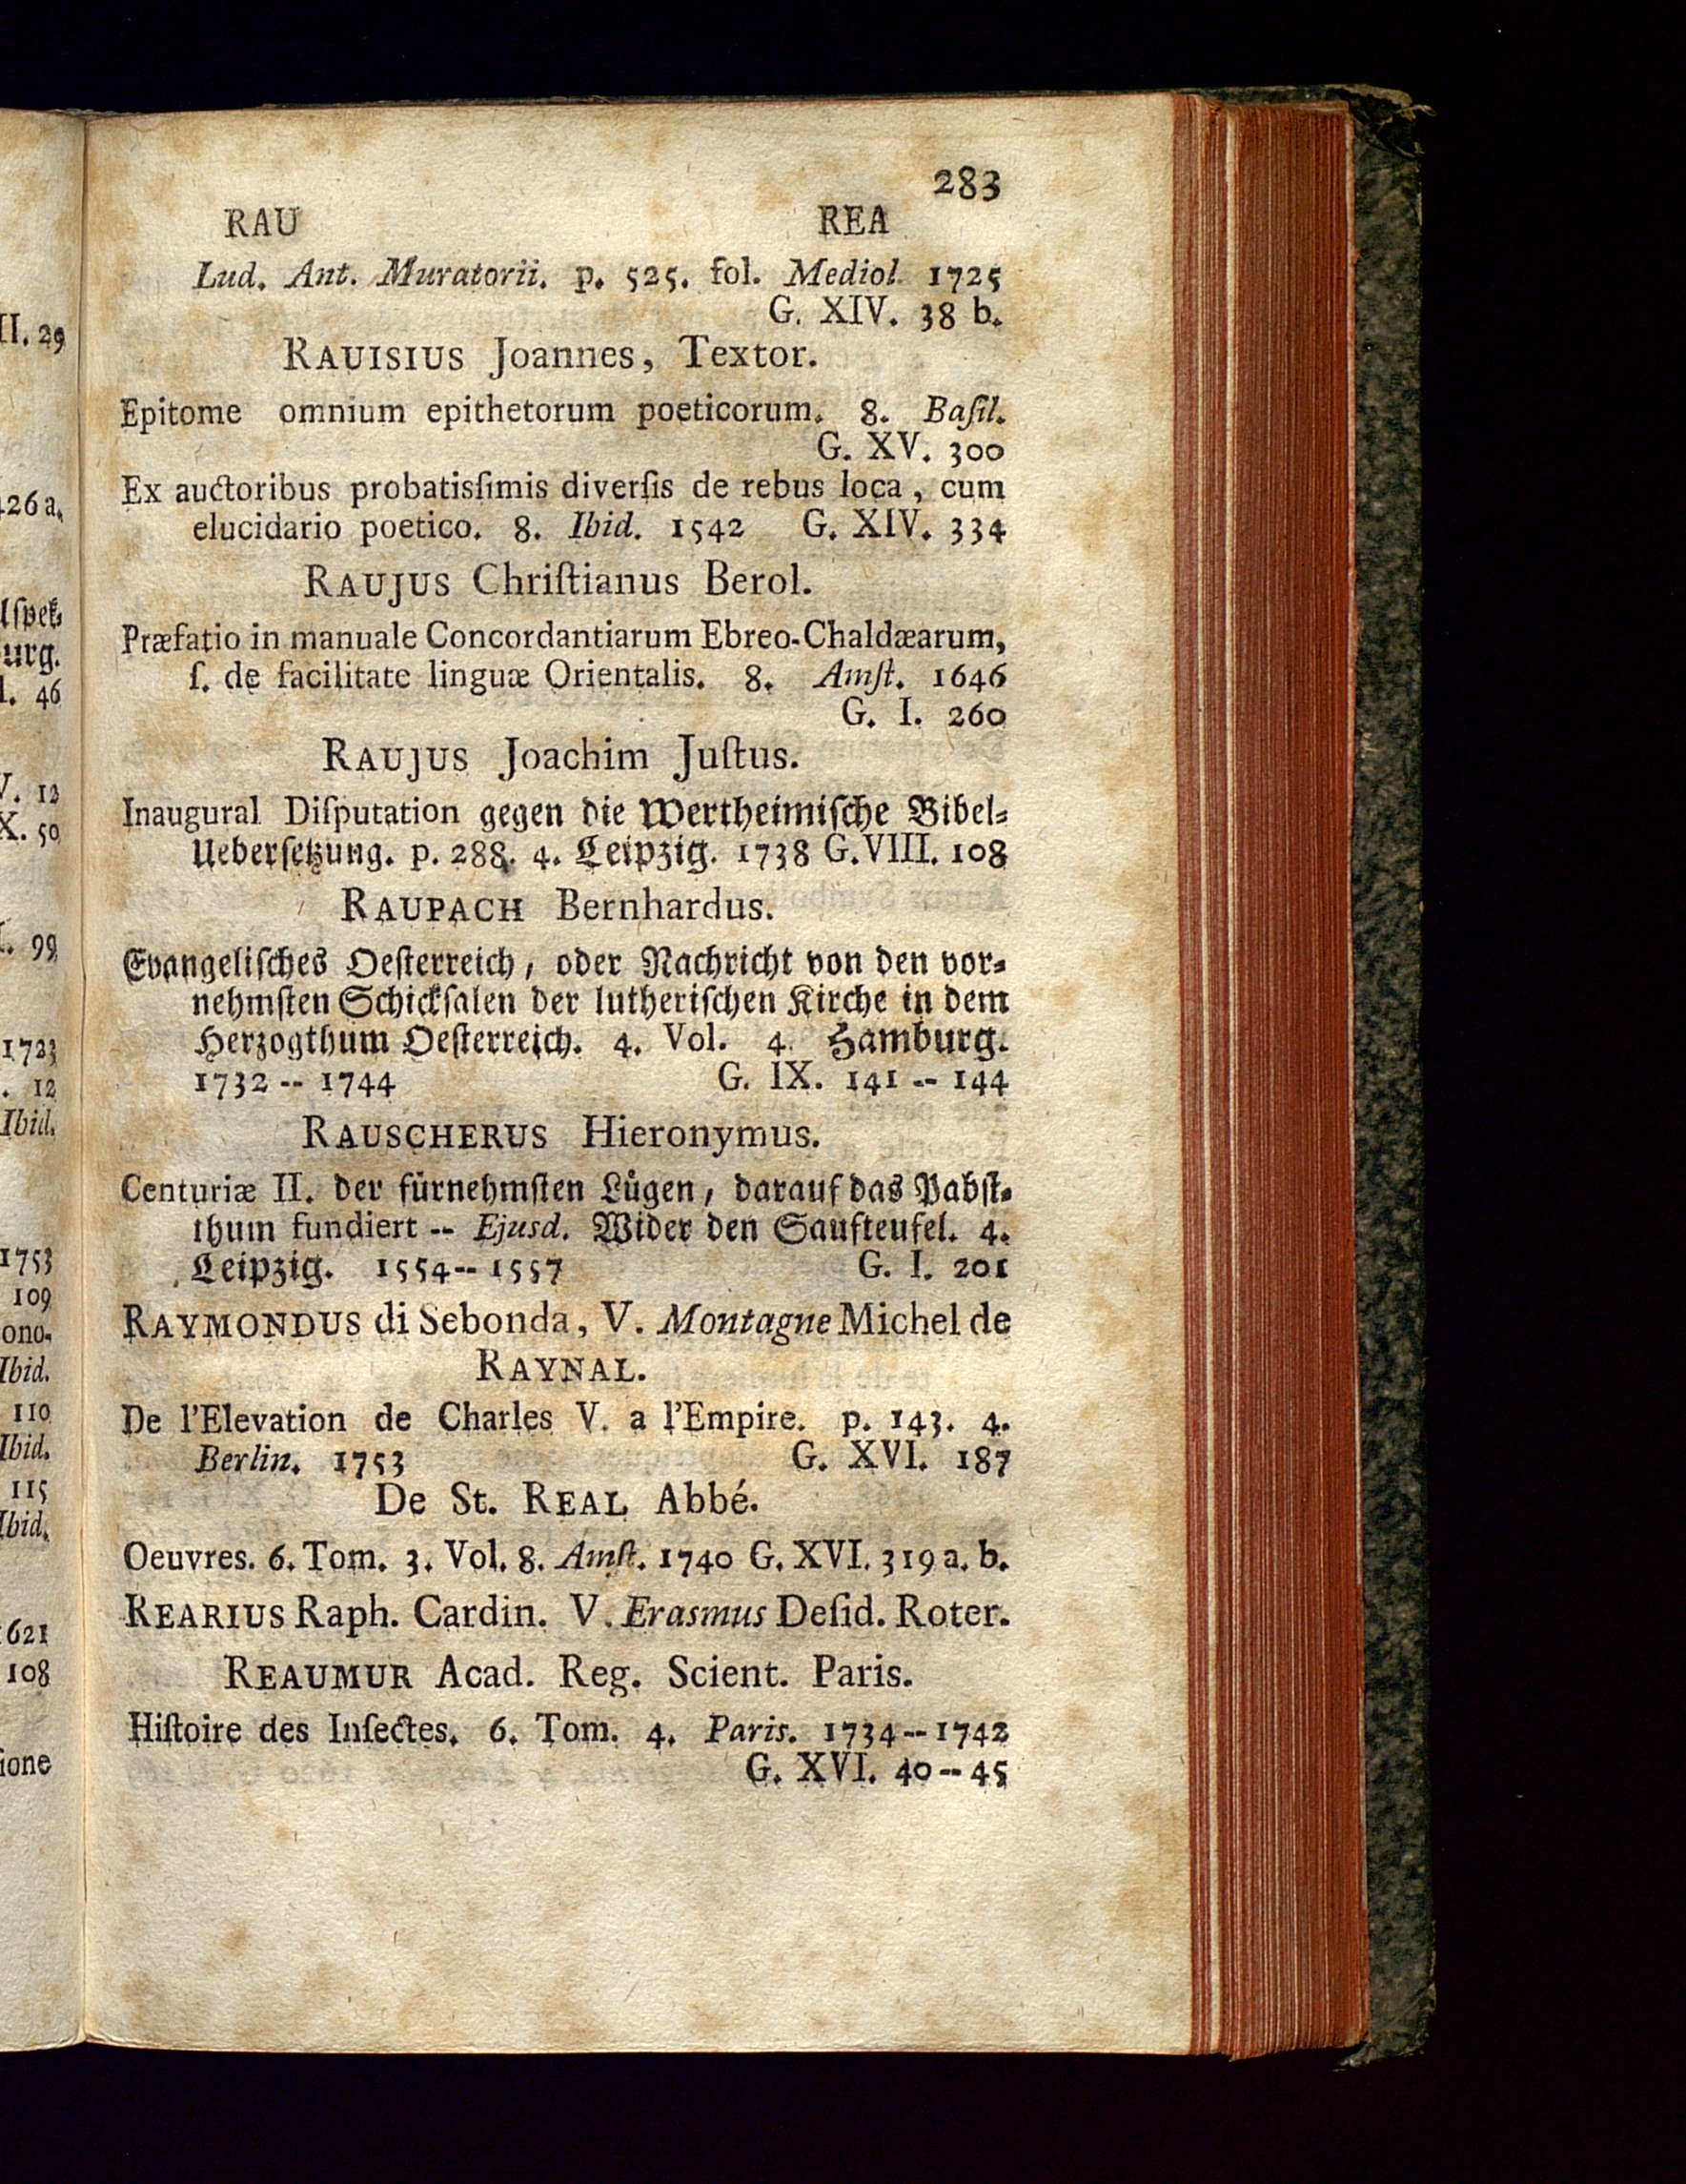 II. 29
426 a.
urg.
l. 46
V. 12
X. 50
I. 99
1723
. 12
Ibid.
1753
109
ono-
Ibid.
110
Ibid.
115
Ibid.
1621
108
ione
283
RAU REA
Lud. Ant. Muratorii. p. 525. fol. Mediol. 1725
G. XIV. 38 b.
RAUISIUS Joannes, Textor.
Epitome omnium epithetorum poeticorum. 8. Baſil.
G. XV. 300
Ex auctoribus probatisſimis diverſis de rebus loca, cum
elucidario poetico. 8. Ibid. 1542 G. XIV. 334
RAUJUS Chriſtianus Berol.
Præfatio in manuale Concordantiarum Ebreo-Chaldæarum,
ſ. de facilitate linguæ Orientalis. 8. Amſt. 1646
G. I. 260
RAUJUS Joachim Juſtus.
Inaugural Diſputation gegen die Wertheimiſche Bibel-
Ueberſetzung. p. 288. 4. Leipzig. 1738 G. VIII. 108
RAUPACH Bernhardus.
Evangeliſches Oeſterreich, oder Nachricht von den vor-
nehmſten Schickſalen der lutheriſchen Kirche in dem
Herzogthum Oeſterreich. 4. Vol. 4. Hamburg.
1732 -- 1744 G. IX. 141 -- 144
RAUSCHERUS Hieronymus.
Centuriæ II. der fürnehmſten Lügen, darauf das Pabſt-
thum fundiert -- Ejusd. Wider den Saufteufel. 4.
Leipzig. 1554 -- 1557 G. I. 201
RAYMONDUS di Sebonda, V. Montagne Michel de
RAYNAL.
De l'Elevation de Charles V. a l'Empire. p. 143. 4.
Berlin. 1753 G. XVI. 187
De St. REAL Abbé.
Oeuvres. 6. Tom. 3. Vol. 8. Amſt. 1740 G. XVI. 319 a. b.
REARIUS Raph. Cardin. V. Erasmus Deſid. Roter.
REAUMUR Acad. Reg. Scient. Paris.
Hiſtoire des Inſectes. 6. Tom. 4. Paris. 1734 -- 1742
G. XVI. 40 -- 45